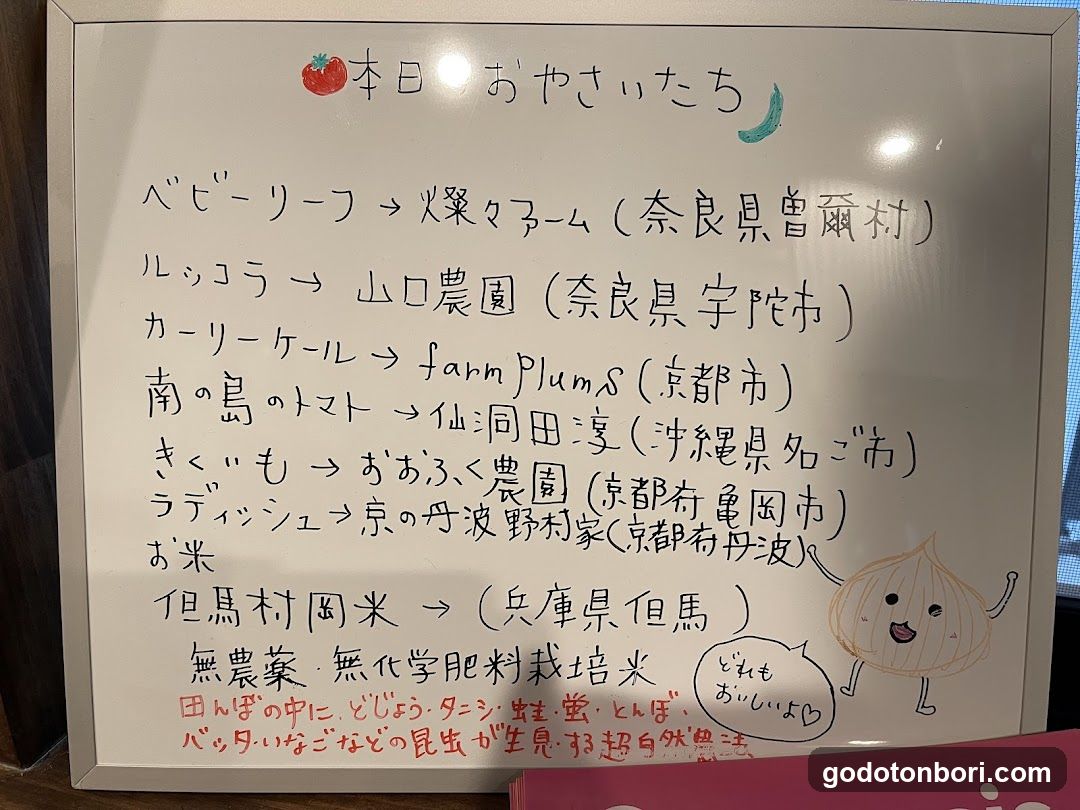 本日 おやさいたち
ベビーリーフ → 燦々ファーム (奈良県曽爾村)
ルッコラ → 山口農園 (奈良県宇陀市)
カーリーケール → farm plums (京都市)
南の島のトマト → 仙洞田淳 (沖縄県名ご市)
きくいも → おおふく農園 (京都府亀岡市)
ラディッシュ → 京の丹波野村家 (京都府丹波)
お米
但馬村岡米 → (兵庫県但馬)
無農薬・無化学肥料栽培米
田んぼの中に、どじょう・タニシ・蛙・蛍・とんぼ・
バッタ・いなごなどの昆虫が生息する超自然農法
どれも
おいしいよ♡
godotonbori.com